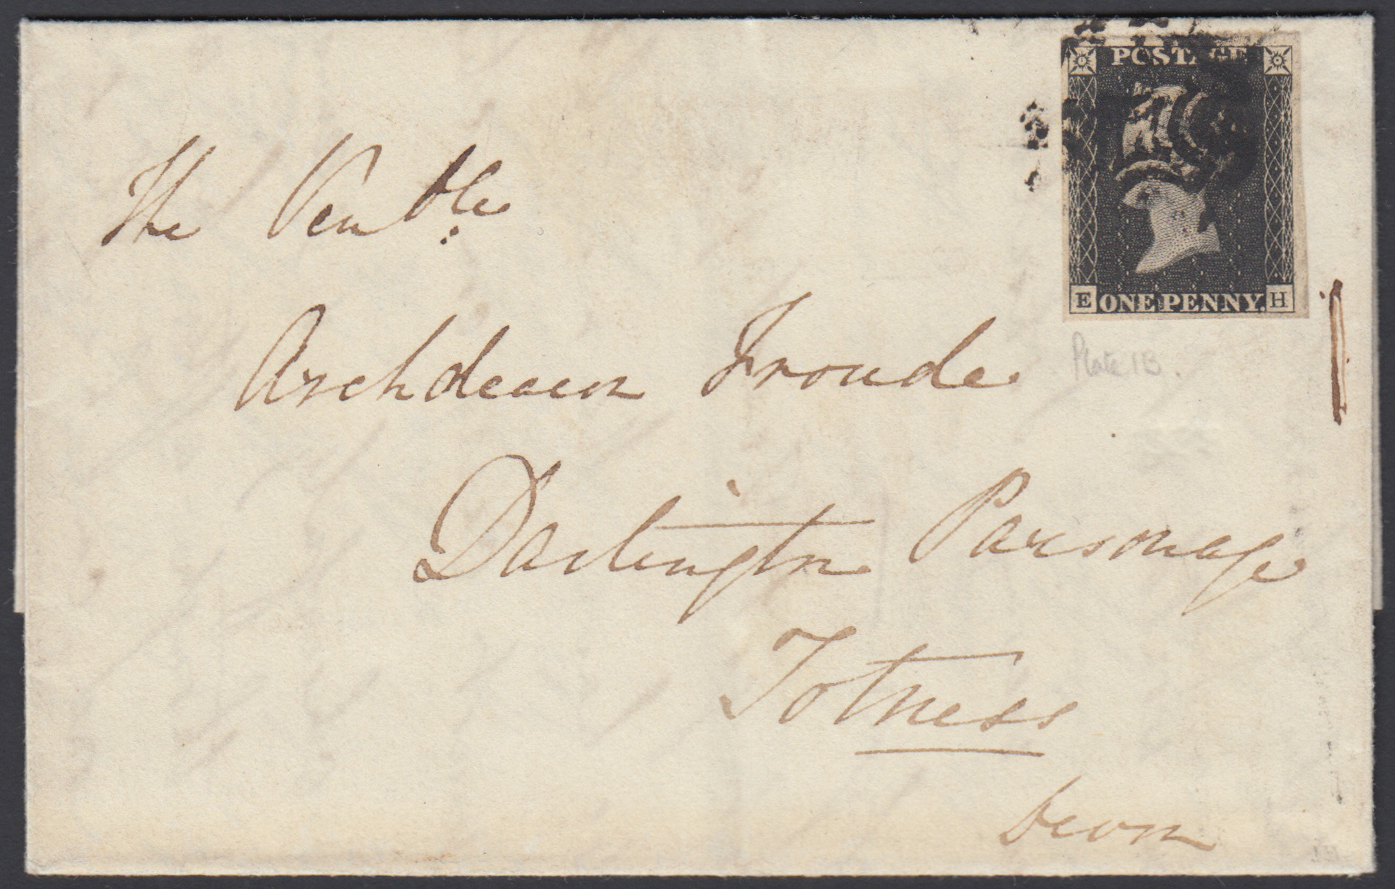 POSTAGE
E ONE PENNY. H
Plate 1B.
The Venble
Archdeacon Froude
Dartington Parsonage
Totness
Devon